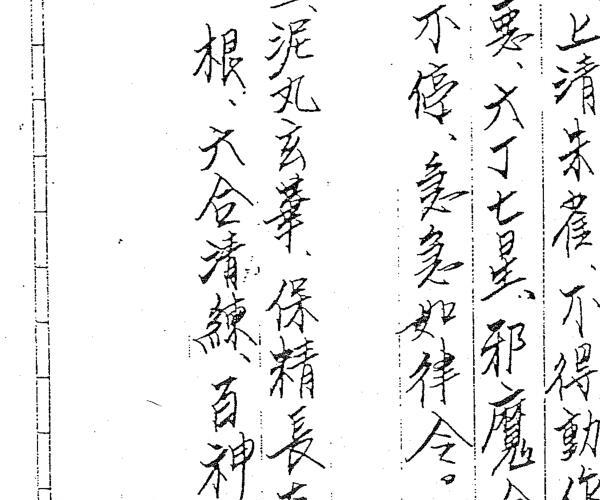 上清朱雀、不得動作
悪、六丁七星、邪魔
不停、急急如律令。
泥丸玄華、保精長存
根、六合清練、百神